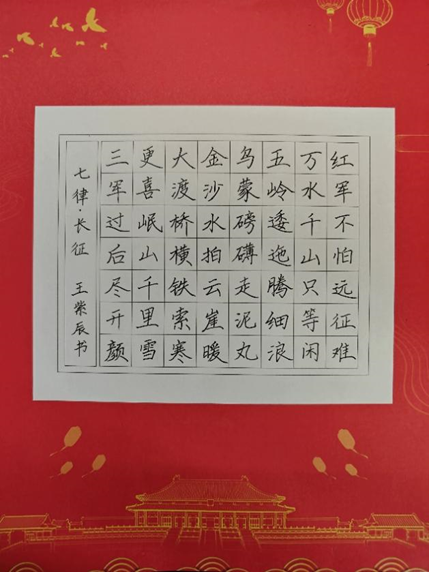 红军不怕远征难
万水千山只等闲
五岭逶迤腾细浪
乌蒙磅礴走泥丸
金沙水拍云崖暖
大渡桥横铁索寒
更喜岷山千里雪
三军过后尽开颜
七律·长征 王紫辰书